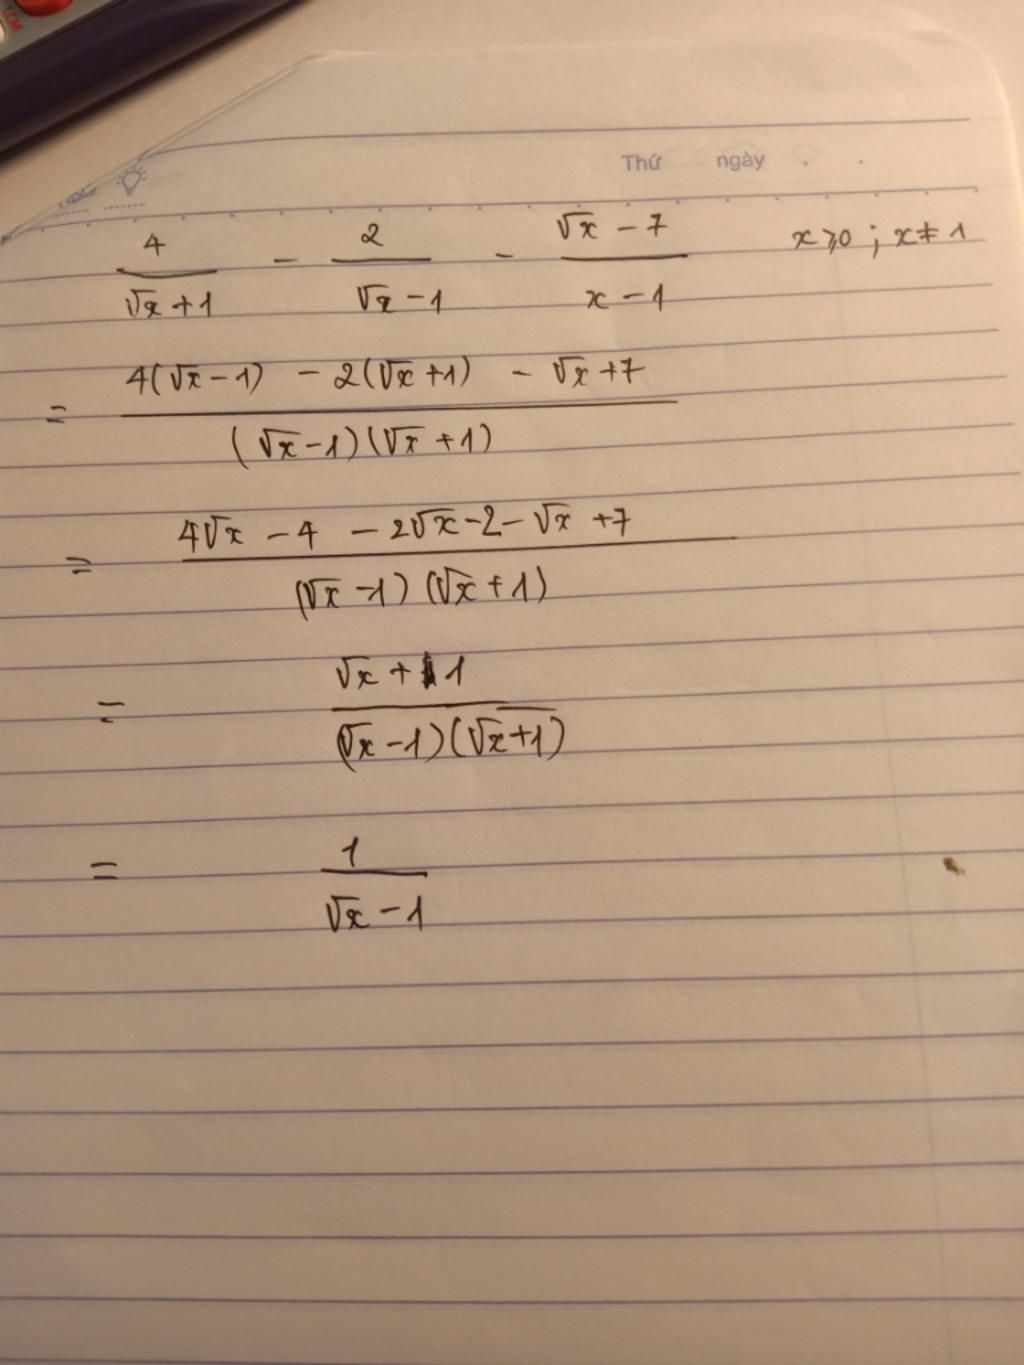 Thứ ngày
4/(√x + 1) - 2/(√x - 1) - (√x - 7)/(x - 1) x ⩾ 0 ; x ≠ 1
= (4(√x - 1) - 2(√x + 1) - √x + 7)/((√x - 1)(√x + 1))
= (4√x - 4 - 2√x - 2 - √x + 7)/((√x - 1)(√x + 1))
= (√x + 1)/((√x - 1)(√x + 1))
= 1/(√x - 1)